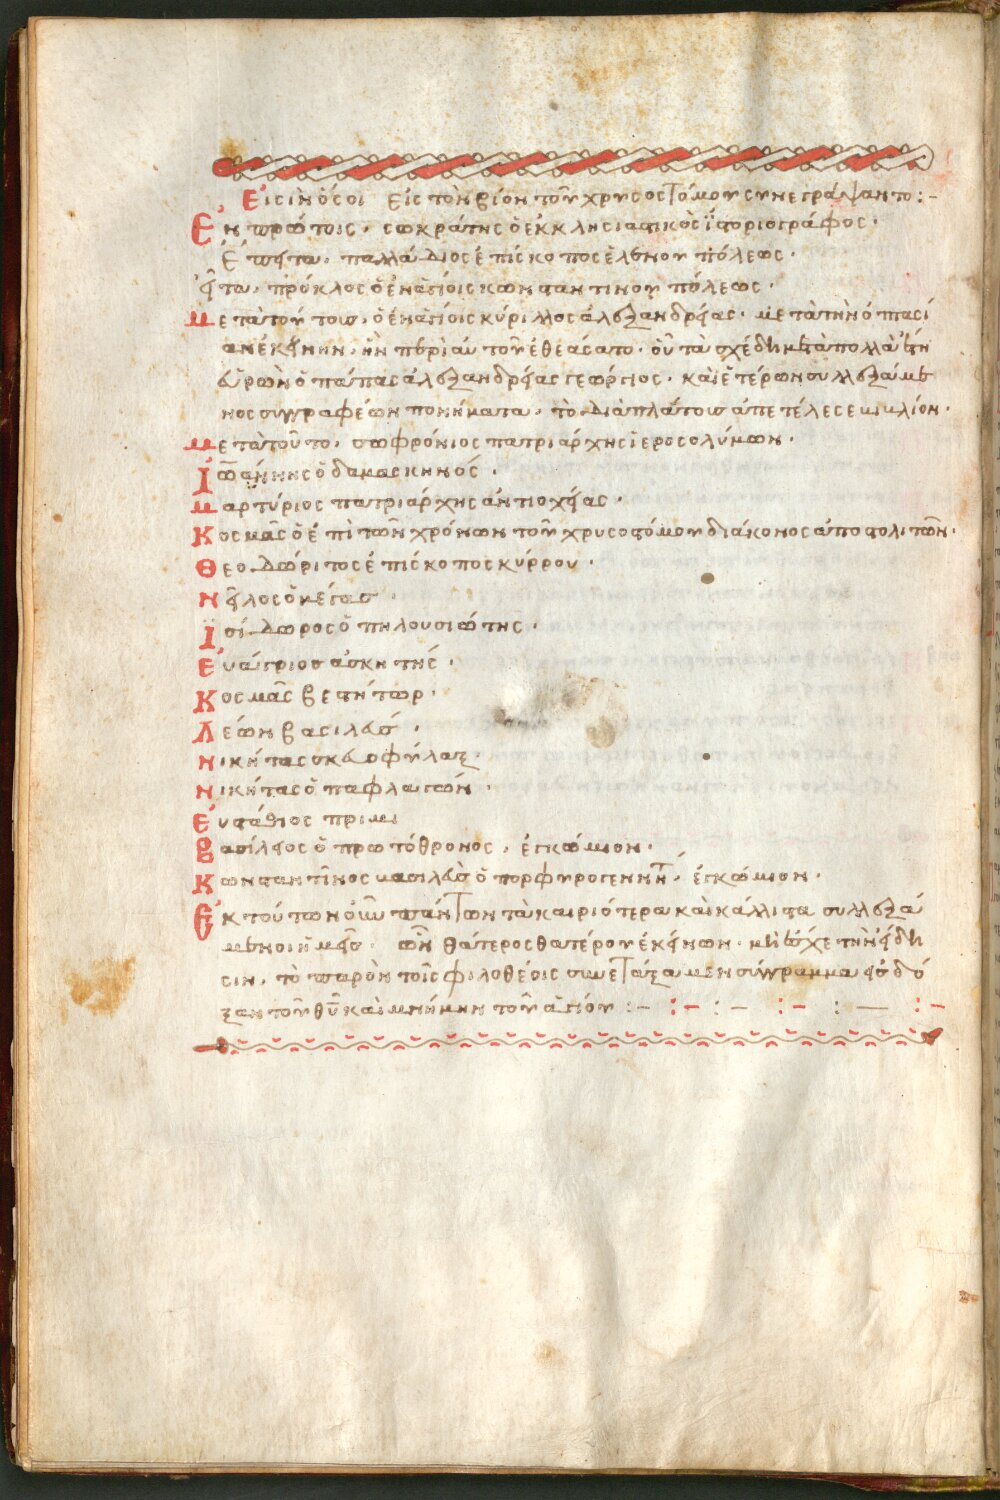 Εἰσὶν ὅσοι εἰς τὸν βίον τοῦ χρυσοστόμου συνεγράψαντο :-
Ἐν πρώτοις, σωκράτης ὁ ἐκκλησιαστικὸς ἱστοριογράφος.
Ἔπειτα, παλλάδιος ἐπίσκοπος ἐλενουπόλεως.
εἶτα, πρόκλος ὁ ἐν ἁγίοις κωνσταντινουπόλεως.
Μετὰ τούτοις, ὁ ἐν ἁγίοις κύριλλος ἀλεξανδρείας. μετὰ τὴν ὀπτασί
αν ἐκείνην, ἣν περὶ αὐτοῦ ἐθεάσατο. οὗ τὰ σχέδη μετὰ πολλὰ ἔτη
εὑρὼν ὁ πάπας ἀλεξανδρείας γεώργιος. καὶ ἑτέρων συλλεξάμε
νος συγγραφέων πονήματα, τὸ διὰ πλάτους ἀπετέλεσε βιβλίον.
Μετὰ τοῦτο, σωφρόνιος πατριάρχης ἱεροσολύμων.
Ἰωάννης ὁ δαμασκηνός.
Μαρτύριος πατριάρχης ἀντιοχείας.
Κοσμᾶς ὁ ἐπὶ τῶν χρόνων τοῦ χρυσοστόμου διάκονος ἀποστολιτῶν.
Θεοδώριτος ἐπίσκοπος κύρρου.
Νεῖλος ὁ μέγας.
Ἰσίδωρος ὁ πηλουσιώτης.
Εὐάγριος ἀσκητής.
Κοσμᾶς βεστήτωρ.
Λέων βασιλεύς.
Νικήτας σκευοφύλαξ.
Νικήτας ὁ παφλαγών.
Εὐστάθιος πριμι
Βασίλειος ὁ πρωτόθρονος, ἐγκώμιον.
Κωνσταντῖνος βασιλεὺς ὁ πορφυρογέννητ, ἐγκώμιον.
Ἐκ τούτων οὖν πάντων τὰ καιριότερα καὶ κάλλιστα συλλεξά
μενοι ἡμεῖς. ὧν θάτερος θατέρου ἐκείνων. μὴ εἶχε τὴν εἴδη
σιν, τὸ παρὸν τοῖς φιλοθέοις συνετάξαμεν σύγγραμμα εἰς δό
ξαν τοῦ θυ καὶ μνήμην τοῦ ἁγίου :- :- :- :- : — :-